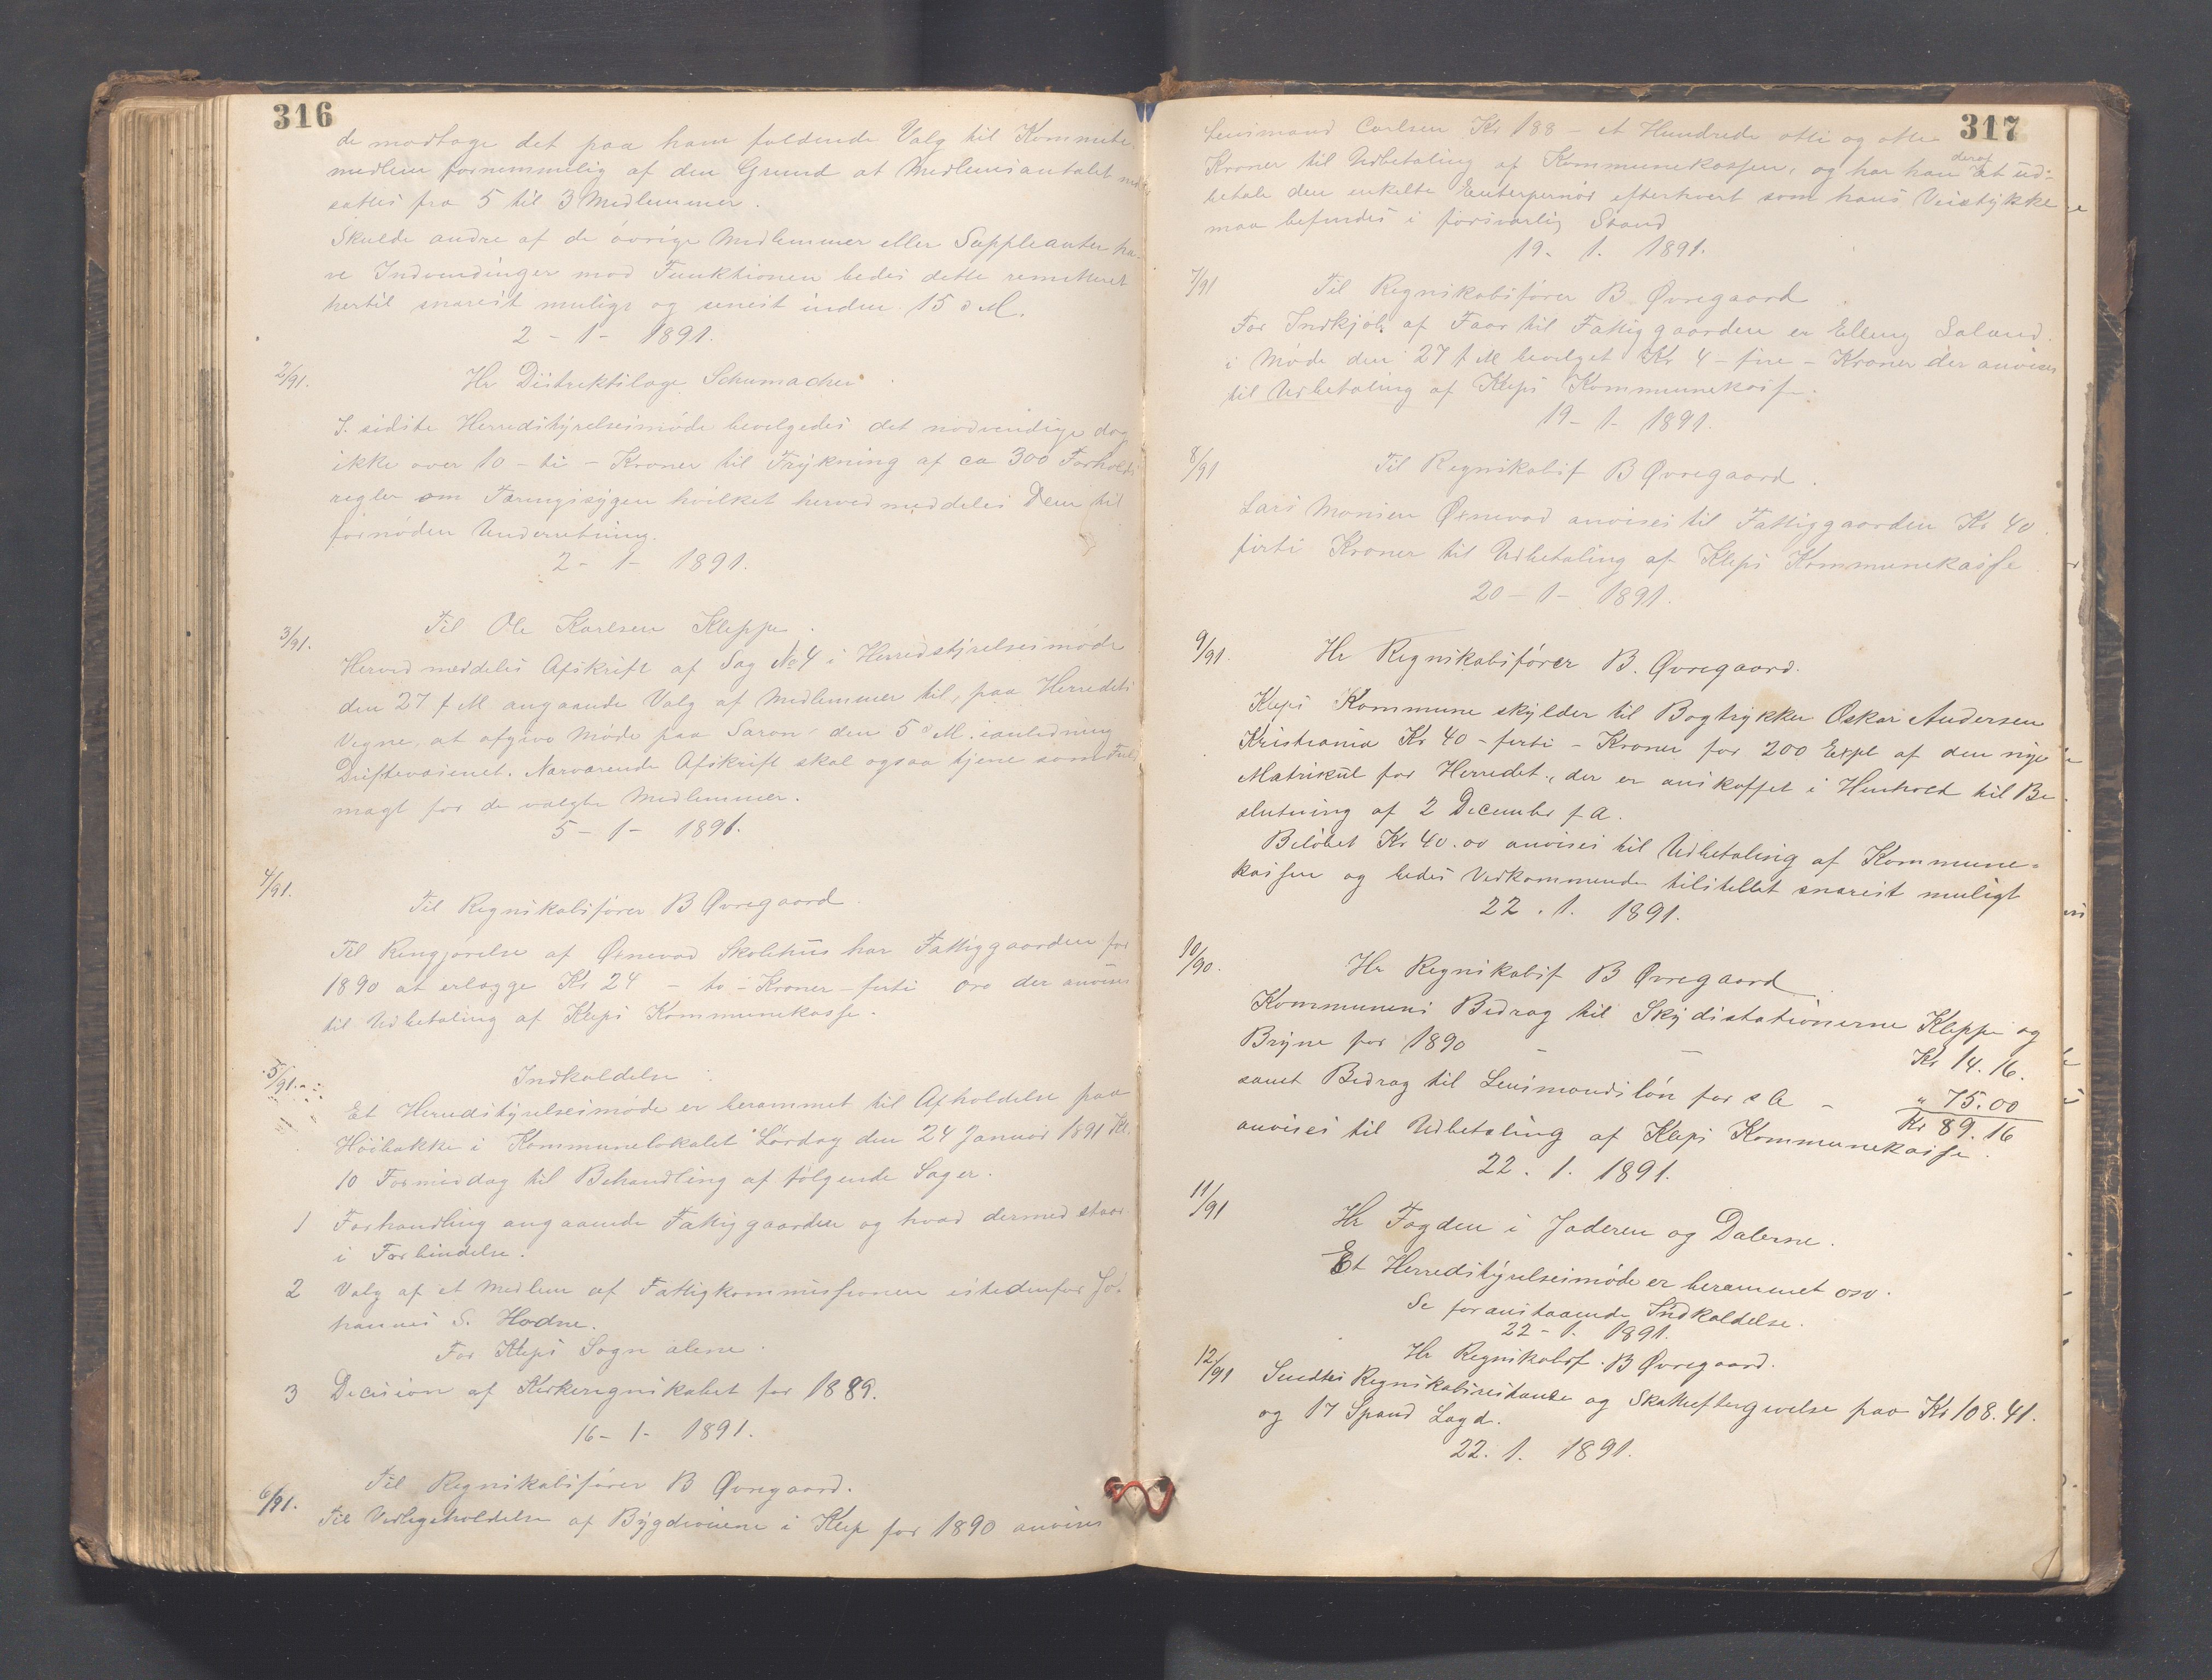 316
de modtage det paa ham faldende Valg til Kommite
medlem fornemmelig af den Grund at Medlemsantalet ned
sattes fra 5 til 3 Medlemmer.
Skulde andre af de øvrige Medlemmer eller Suppleanter ha-
ve Indvendinger mod Funktionen bedes dette remitteret
hertil snarest muligt og senest inden 15 d M.
2 - 1 - 1891.
2/91.
Hr Distriktslæge Schumacher
I sidste Herredstyrelsesmøde bevilgedes det nødvendige dog
ikke over 10 - ti - Kroner til Trykning af ca 300 Forholds
regler om Tæringssygen hvilket herved meddeles Dem til
fornøden Underretning.
2 - 1 - 1891.
3/91.
Til Ole Karlsen Kleppe.
Herved meddeles Afskrift af Sag No 4 i Herredstyrelsesmøde
den 27 f M angaaende Valg af Medlemmer til, paa Herredets
Vegne, at afgive Møde paa Saron den 5 d M. ianledning
Driftevæsenet. Nærværende Afskrift skal ogsaa tjene som Fuld
magt for de valgte Medlemmer.
5 - 1 - 1891.
4/91.
Til Regnskabsfører B Øvregaard.
Til Rengjørelse af Ørnevad Skolehus har Fattiggaarden for
1890 at erlægge Kr 24 - to - Kroner - firti Øre der anvises
til Udbetaling af Kleps Kommunekasse.
5/91.
Indkaldelse
Et Herredstyrelsesmøde er berammet til Afholdelse paa
Høibakke i Kommunelokalet Lørdag den 24 Januar 1891 Kl.
10 Formiddag til Behandling af følgende Sager.
1 Forhandling angaaende Fattiggaarden og hvad dermed staar
i Forbindelse.
2 Valg af et Medlem af Fattigkommissionen istedenfor Jo-
hannes S. Hodne.
For Kleps Sogn alene.
3 Decision af Kirkeregnskabet for 1889.
16 - 1 - 1891.
6/91.
Til Regnskabsfører B Øvregaard.
Til Vedligeholdelse af Bygdeveiene i Klep for 1890 anvises
317
Lensmand Carlsen Kr 188 - et Hundrede otti og otte
Kroner til Udbetaling af Kommunekassen, og har han deraf at ud-
betale den enkelte Enterpernør efterhvert som hans Veistykke
maa befindes i forsvarlig Stand
19 - 1. 1891.
7/91
Til Regnskabsfører B Øvregaard
For Indkjøb af Faar til Fattiggaarden er Elling Saland
i Møde den 27 f M bevilget Kr 4 - fire - Kroner der anvises
til Udbetaling af Kleps Kommunekasse.
19 - 1 - 1891.
8/91
Til Regnskabsf B Øvregaard.
Lars Monsen Ørnevad anvises til Fattiggaarden Kr 40
firti Kroner til Udbetaling af Kleps Kommunekasse
20 - 1 - 1891.
9/91.
Hr Regnskabsfører B. Øvregaard.
Kleps Kommune skylder til Bogtrykker Oskar Andersen
Kristiania Kr 40 - firti - Kroner for 200 Expl af den nye
Matrikul for Herredet, der er anskaffet i Henhold til Be
slutning af 2 December f A.
Beløbet Kr 40.00 anvises til Udbetaling af Kommune-
kassen og bedes Vedkommende tilstillet snarest muligt
22. 1. 1891.
10/90.
Hr Regnskabsf B Øvregaard
Kommunens Bidrag til Skydsstationerne Kleppe og
Bryne for 1890 - - Kr 14.16.
samt Bidrag til Lensmandsløn for s A - " 75.00
Kr 89.16
anvises til Udbetaling af Kleps Kommunekasse.
22. 1. 1891.
11/91
Hr Fogden i Jæderen og Dalerne.
Et Herredstyrelsesmøde er berammet osv.
Se foranstaaende Indkaldelse.
22 - 1. 1891.
12/91
Hr Regnskabsf. B Øvregaard.
Sendtes Regnskabsrestance og Skatteftergivelse paa Kr 108.41.
og 17 Spand Lagd.
22. 1. 1891.